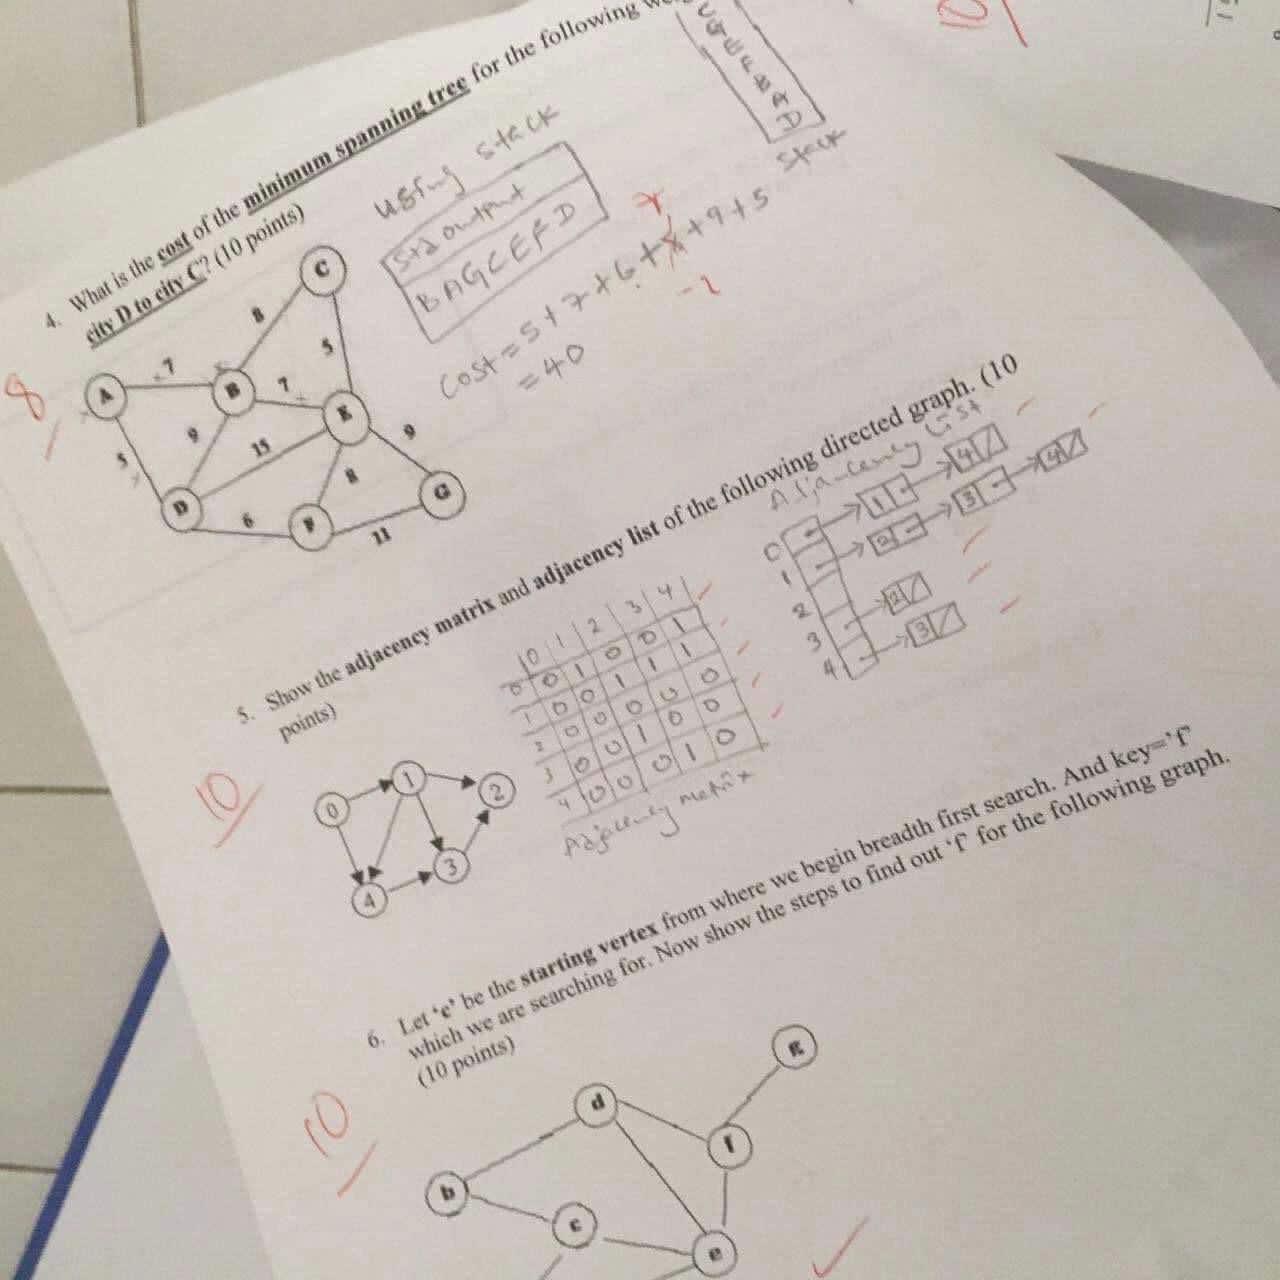 10
4. What is the cost of the minimum spanning tree for the following
city D to city C? (10 points)
8
A
B
C
D
E
F
G
7
8
5
7
9
15
5
6
8
9
11
using stack
Std output
B A G C E F D
G
E
F
B
A
D
stack
cost = 5 + 7 + 6 + 8 + 9 + 5
7
-2
= 40
5. Show the adjacency matrix and adjacency list of the following directed graph. (10
points)
10
0
1
2
3
4
0 1 2 3 4
0 0 1 0 0 1
1 0 0 1 1 1
2 0 0 0 0 0
3 0 0 1 0 0
4 0 0 0 1 0
Adjacency matrix
Adjacency List
0 1 4
1 2 3 4
2
3 2
4 3
6. Let 'e' be the starting vertex from where we begin breadth first search. And key='f'
which we are searching for. Now show the steps to find out 'f' for the following graph.
(10 points)
10
g
d
f
b
c
e